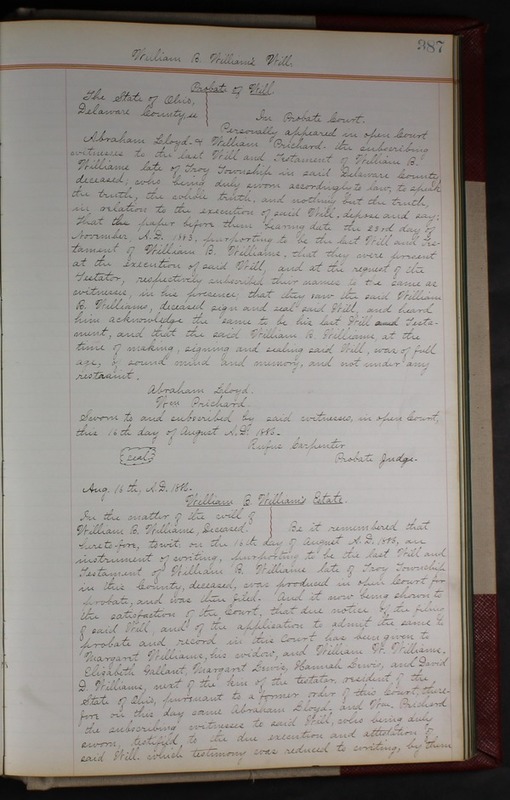 387
William B. Williams Will.
Probate of Will.
The State of Ohio,
Delaware County, ss
In Probate Court.
Personally appeared in open Court
Abraham Lloyd & William Prichard the subscribing
witnesses to the last Will and Testament of William B.
Williams late of Troy Township in said Delaware County,
deceased, who being duly sworn according to law, to speak
the truth, the whole truth, and nothing but the truth,
in relation to the execution of said Will, depose and say:
That the paper before them bearing date the 23rd day of
November A.D. 1883, purporting to be the last Will and Tes-
tament of William B. Williams, that they were present
at the execution of said Will, and at the request of the
Testator, respectively subscribed their names to the same as
witnesses, in his presence, that they saw the said William
B. Williams, deceased sign and seal said Will, and heard
him acknowledge the same to be his last Will and Testa-
ment, and that the said William B. Williams at the
time of making, signing and sealing said Will, was of full
age, of sound mind and memory, and not under any
restraint.
Abraham Lloyd.
Wm Prichard.
Sworn to and subscribed by said witnesses, in open Court,
this 16th day of August A.D. 1886.
Rufus Carpenter
seal
Probate Judge.
Aug. 16th, A.D. 1886.
William B Williams Estate.
In the matter of the will of
William B. Williams, Deceased.
Be it remembered that
heretofore, towit, on the 16th day of August A.D. 1886, an
instrument of writing, purporting to be the last Will and
Testament of William B. Williams late of Troy Township
in this County, deceased, was produced in open Court for
probate, and was then filed. And it now being shown to
the satisfaction of the Court, that due notice of the filing
of said Will, and of the application to admit the same to
probate and record in this Court has been given to
Margaret Williams, his widow, and William W. Williams.
Elizabeth Gallant, Margaret Lewis, Hannah Lewis, and David
D. Williams, next of the kin of the testator, resident of the
State of Ohio, pursuant to a former order of this Court, there-
fore on this day came Abraham Lloyd, and Wm. Prichard
the subscribing witnesses to said Will, who being duly
sworn, testified, to the due execution and attestation of
said Will. which testimony was reduced to writing, by them